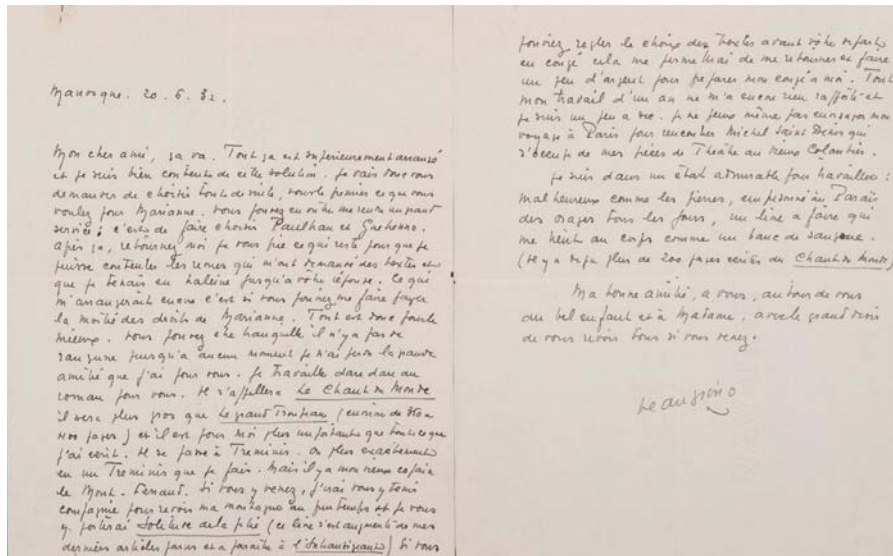 Manosque. 20. 6. 32.
Mon cher ami, ça va. Tout ça est supérieurement arrangé
et je suis bien content de cette solution. Je vais donc vous
demander de choisir tout de suite, vous le premier ce que vous
voulez pour Marianne. Vous pouvez en outre me rendre un grand
service; c'est de faire choisir Paulhan et Guéhenno.
Après ça, retournez moi je vous prie ce qui reste pour que je
puisse contenter les revues qui m'ont demandé des textes et
que je tenais en haleine jusqu'à votre réponse. Ce qui
m'arrangerait encore c'est si vous pouviez me faire payer
la moitié des droits de Marianne. Tout est donc pour le
mieux. Vous pouvez être tranquille il n'y a pas de
rancune jusqu'à aucun moment je n'ai perdu la grande
amitié que j'ai pour vous. Je travaille dare dare au
roman pour vous. Il s'appellera Le Chant du Monde
il sera plus gros que Le grand Troupeau (environ de
pages) et il est pour moi plus important que tout ce que
j'ai écrit. Il se passe à Tréminis. Ou plus exactement
en un Tréminis que je fais. Mais il y a mon vieux copain
le Mont. Ferraud. Si vous y venez, j'irai vous y tenir
compagnie pour revoir ma montagne au printemps et je vous
y porterai Solitude de la pitié (ce livre s'est augmenté de mes
derniers articles parus et à paraître à l'Intransigeant) Si vous
pouviez régler le choix des textes avant votre départ
en congé cela me permettrai de me retourner et faire
un peu d'argent pour préparer mon congé à moi. Tout
mon travail d'un an ne m'a encore rien rapporté et
je suis un peu à sec. Je ne peux même pas envisager mon
voyage à Paris pour rencontrer Michel Saint Denis qui
s'occupe de mes pièces de Théâtre au Vieux Colombier.
Je suis dans un état admirable pour travailler:
malheureux comme les pierres, emprisonné au Paraïs
des orages tous les jours, un livre à faire qui
me tient au corps comme un banc de sangsue.
(Il y a déjà plus de 200 pages écrites du Chant du Monde)
Ma bonne amitié, à vous, autour de vous
au bel enfant et à Madame, avec le grand désir
de vous revoir tous si vous venez.
Jean Giono